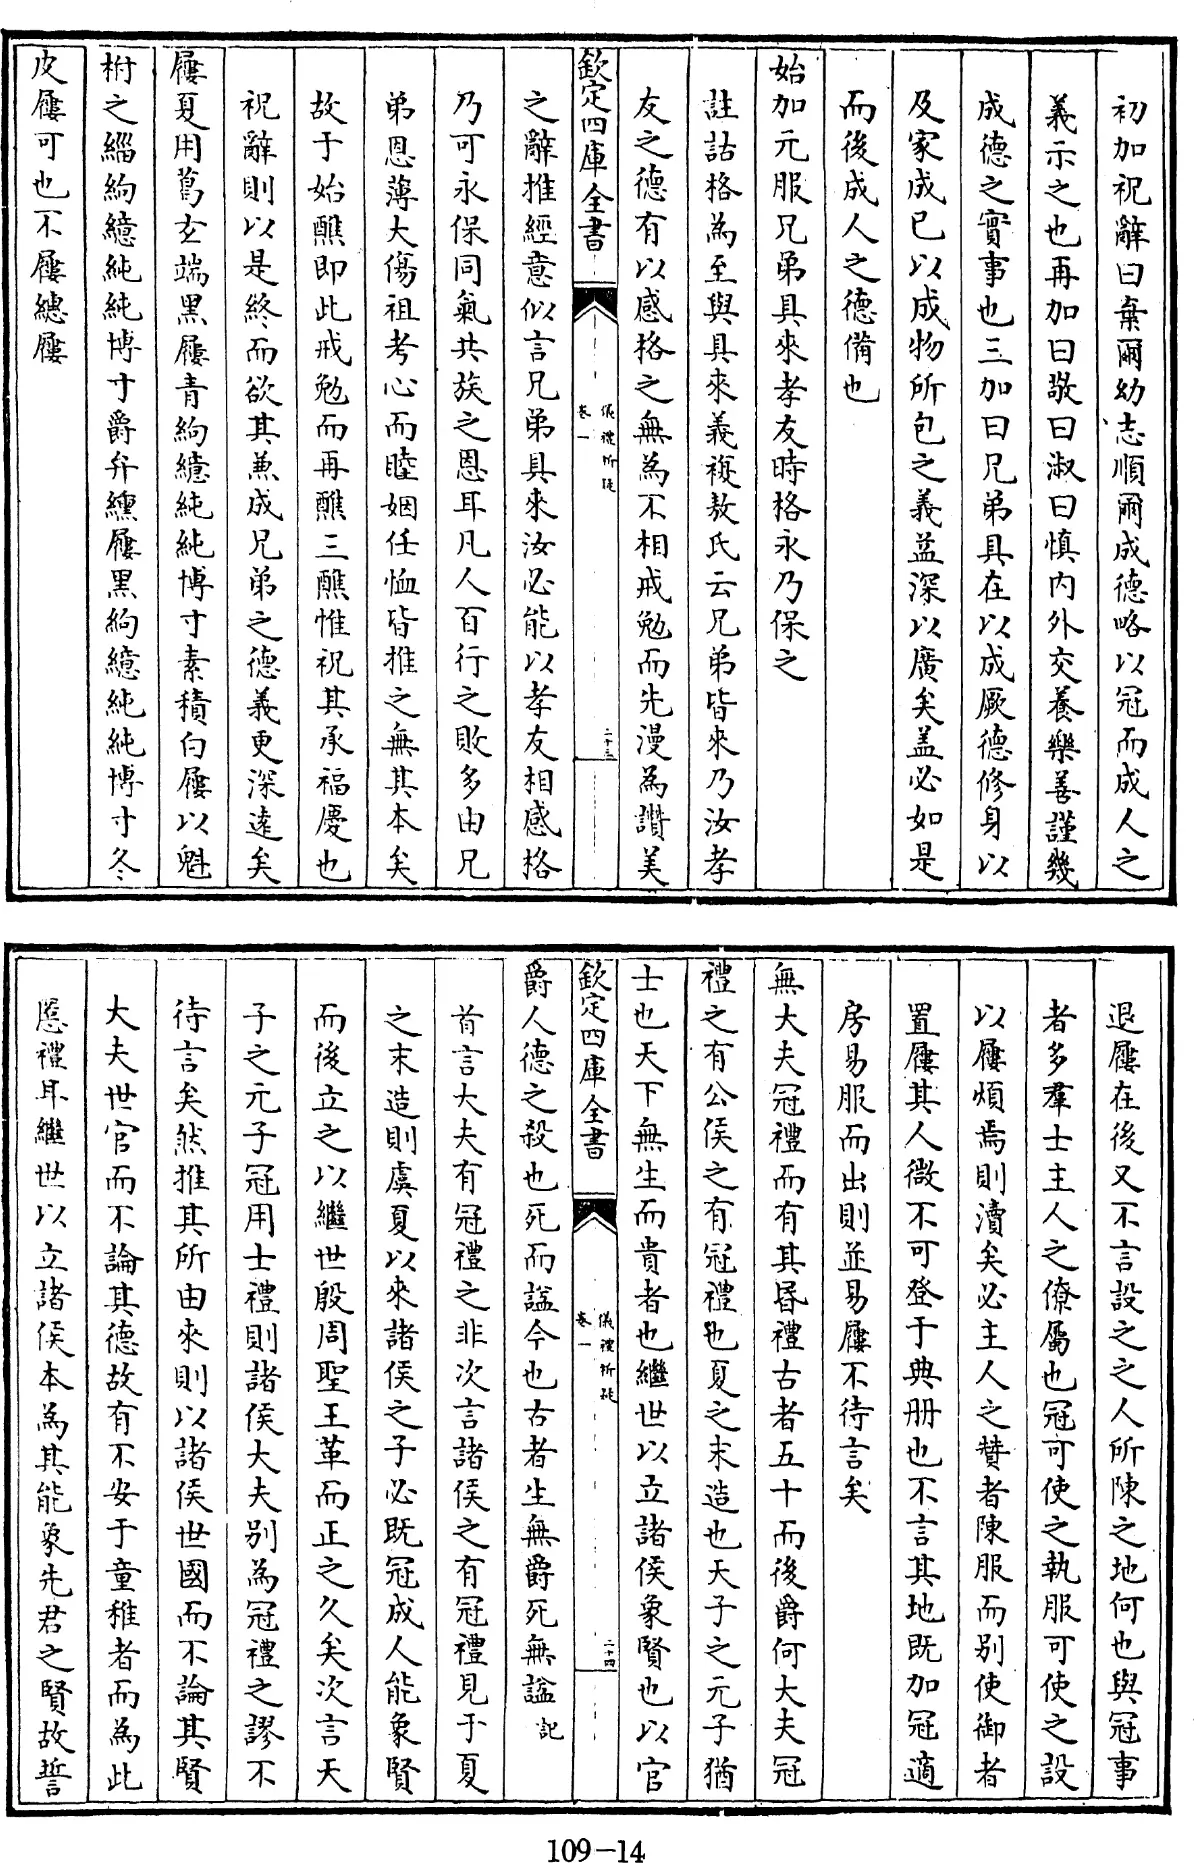 初加祝辭曰棄爾幼志順爾成德略以冠而成人之
義示之也再加曰敬曰淑曰慎内外交養樂善謹幾
成德之實事也三加曰兄弟具在以成厥德修身以
及家成已以成物所包之義益深以廣矣盖必如是
而後成人之德備也
始加元服兄弟具來孝友時格永乃保之
註詁格為至與具來義複敖氏云兄弟皆來乃汝孝
友之德有以感格之無為不相戒勉而先漫為讚美
欽定四庫全書
儀禮析疑
卷一
二十三
之辭推經意似言兄弟具來汝必能以孝友相感格
乃可永保同氣共族之恩耳凡人百行之敗多由兄
弟恩薄大傷祖考心而睦姻任恤皆推之無其本矣
故于始醮即此戒勉而再醮三醮惟祝其承福慶也
祝辭則以是終而欲其兼成兄弟之德義更深遠矣
屨夏用葛玄端黑屨青絇繶純純博寸素積白屨以魁
柎之緇絇繶純純博寸爵弁纁屨黑絇繶純純博寸冬
皮屨可也不屨繐屨
退屨在後又不言設之之人所陳之地何也與冠事
者多羣士主人之僚屬也冠可使之執服可使之設
以屨煩焉則瀆矣必主人之贊者陳服而别使御者
置屨其人微不可登于典册也不言其地既加冠適
房易服而出則並易屨不待言矣
無大夫冠禮而有其昬禮古者五十而後爵何大夫冠
禮之有公侯之有冠禮也夏之末造也天子之元子猶
士也天下無生而貴者也繼世以立諸侯象賢也以官
欽定四庫全書
儀禮析疑
卷一
二十四
爵人德之殺也死而諡今也古者生無爵死無諡 記
首言大夫有冠禮之非次言諸侯之有冠禮見于夏
之末造則虞夏以來諸侯之子必既冠成人能象賢
而後立之以繼世殷周聖王革而正之久矣次言天
子之元子冠用士禮則諸侯大夫别為冠禮之謬不
待言矣然推其所由來則以諸侯世國而不論其賢
大夫世官而不論其德故有不安于童稚者而為此
慝禮耳繼世以立諸侯本為其能象先君之賢故誓
109-14